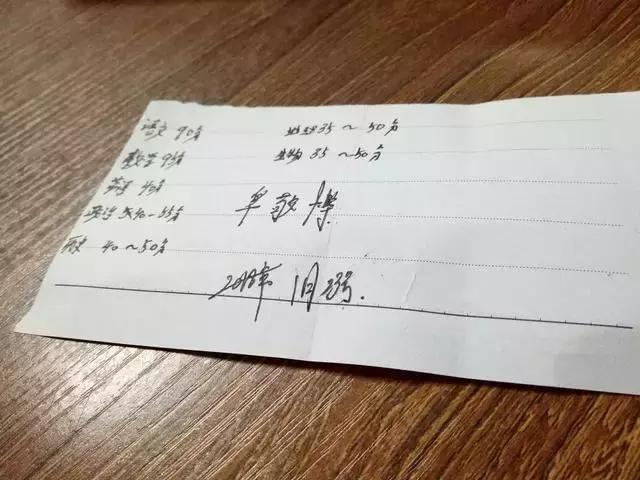 语文 90分
数学 95分
英语 40分
政治 40~55分
历史 40~50分
地理 35~50分
生物 35~50分
牟敬
2018年 1月23号.